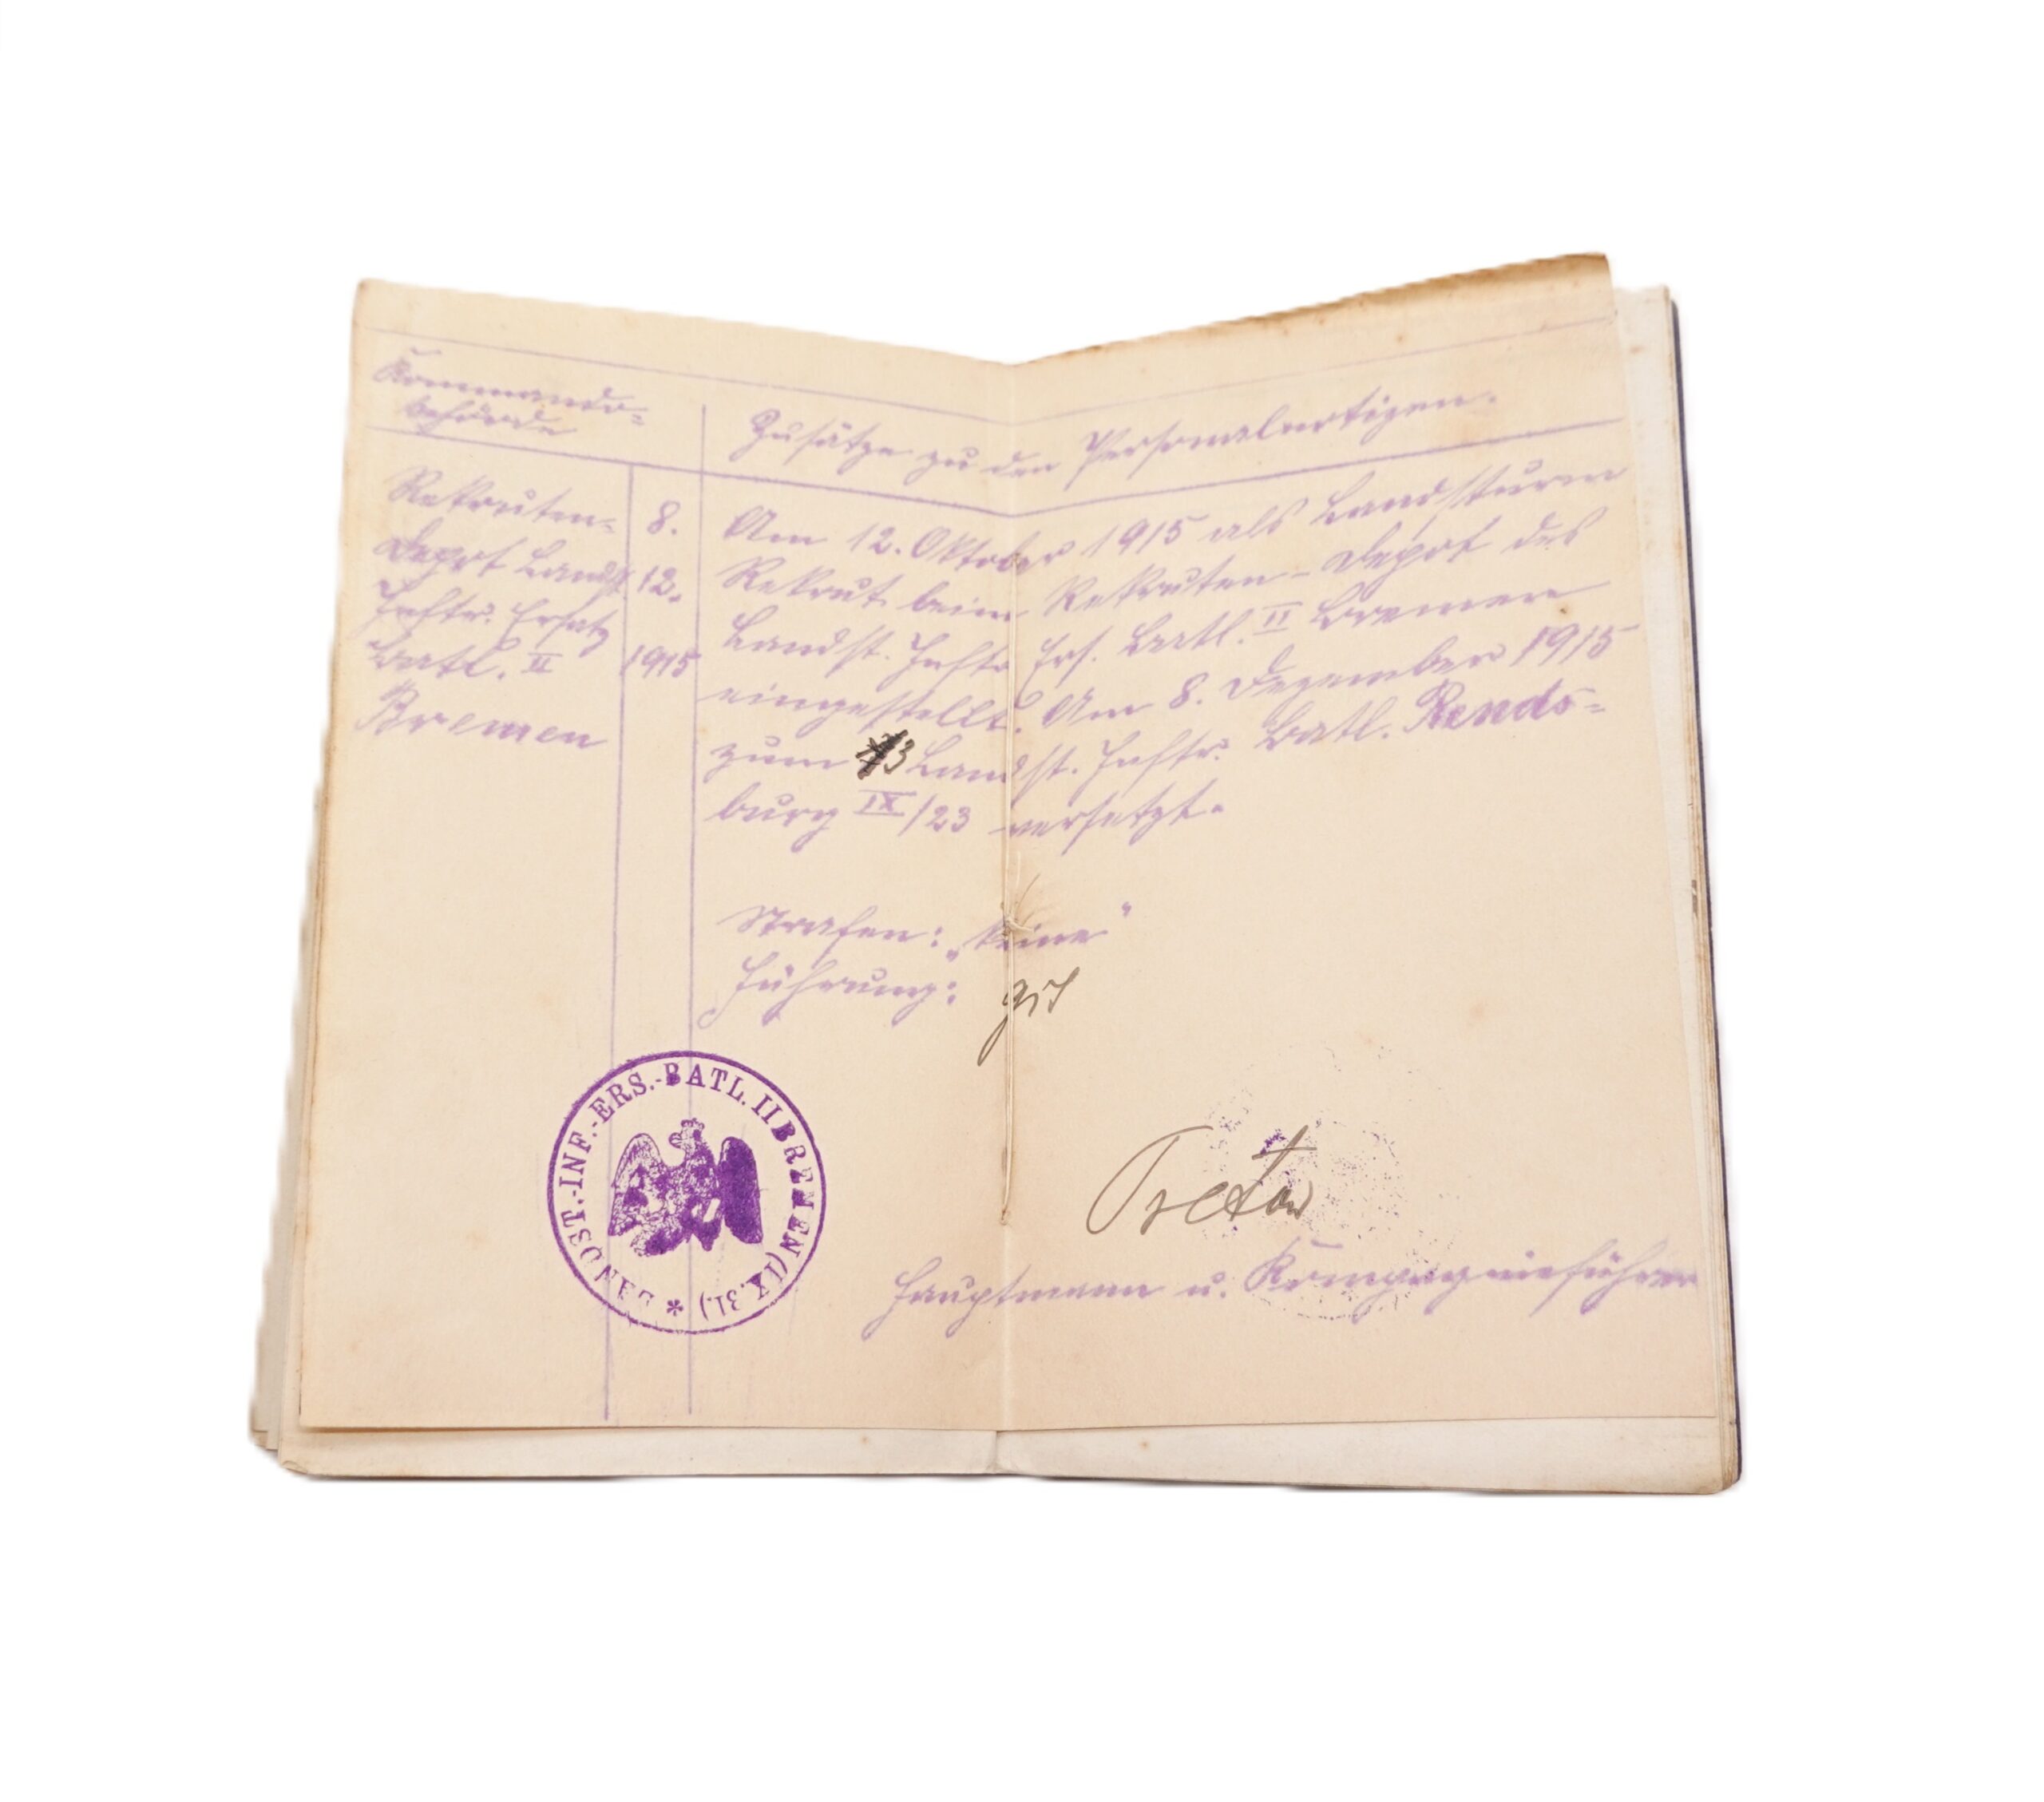 Kommando-
behörde
Zusätze zu den Personalnotizen.
Rekruten-
Depot Landst.
Inftr. Ersatz
Batl. II
Bremen
8.
12.
1915
Am 12. Oktober 1915 als Landsturm
Rekrut beim Rekruten-Depot des
Landst. Inftr. Ers. Batl. II Bremen
eingestellt. Am 8. Dezember 1915
zum 3 Landst. Inftr. Batl. Rends-
burg IX/23 versetzt.
Strafen: „keine“
Führung: gut
LANDST.-INF.-ERS.-BATL. II BREMEN (IX. 31.) *
Hauptmann u. Kompagnieführer